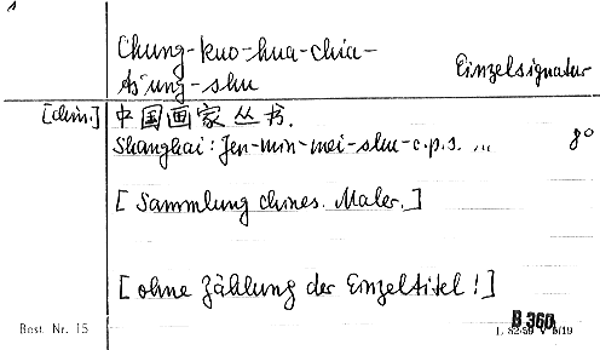 Chung-kuo-hua-chia-
ts'ung-shu
Einzelsignatur
[chin.] 中国画家丛书.
Shanghai: Jen-min-mei-shu-c.p.s. ... 8°
[Sammlung chines. Maler.]
[ohne Zählung der Einzeltitel!]
B 360
Best. Nr. 15